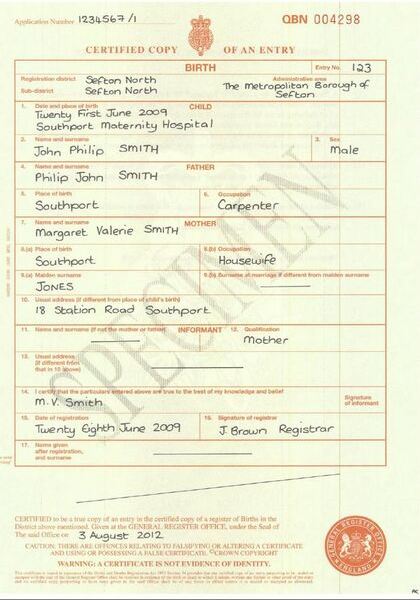 Application Number 1234567/1
QBN 004298
CERTIFIED COPY OF AN ENTRY
BIRTH
Entry No. 123
Registration district Sefton North
Administrative area
Sub-district Sefton North
The Metropolitan Borough of Sefton
1. Date and place of birth CHILD
Twenty First June 2009
Southport Maternity Hospital
2. Name and surname
3. Sex
John Philip SMITH
Male
4. Name and surname FATHER
Philip John SMITH
5. Place of birth
6. Occupation
Southport
Carpenter
7. Name and surname MOTHER
Margaret Valerie SMITH
8.(a) Place of birth
8.(b) Occupation
Southport
Housewife
9.(a) Maiden surname
9.(b) Surname at marriage if different from maiden surname
JONES
10. Usual address (if different from place of child's birth)
18 Station Road Southport
11. Name and surname (if not the mother or father) INFORMANT
12. Qualification
Mother
13. Usual address
(if different from
that in 10 above)
14. I certify that the particulars entered above are true to the best of my knowledge and belief
M. V. Smith
Signature
of informant
15. Date of registration
16. Signature of registrar
Twenty Eighth June 2009
J. Brown Registrar
17. Name given
after registration,
and surname
SPECIMEN
CERTIFIED to be a true copy of an entry in the certified copy of a register of Births in the
District above mentioned. Given at the GENERAL REGISTER OFFICE, under the Seal of
The said Office on 3 August 2012
CAUTION: THERE ARE OFFENCES RELATING TO FALSIFYING OR ALTERING A CERTIFICATE
AND USING OR POSSESSING A FALSE CERTIFICATE. ©CROWN COPYRIGHT
WARNING: A CERTIFICATE IS NOT EVIDENCE OF IDENTITY.
GENERAL REGISTER OFFICE
ENGLAND